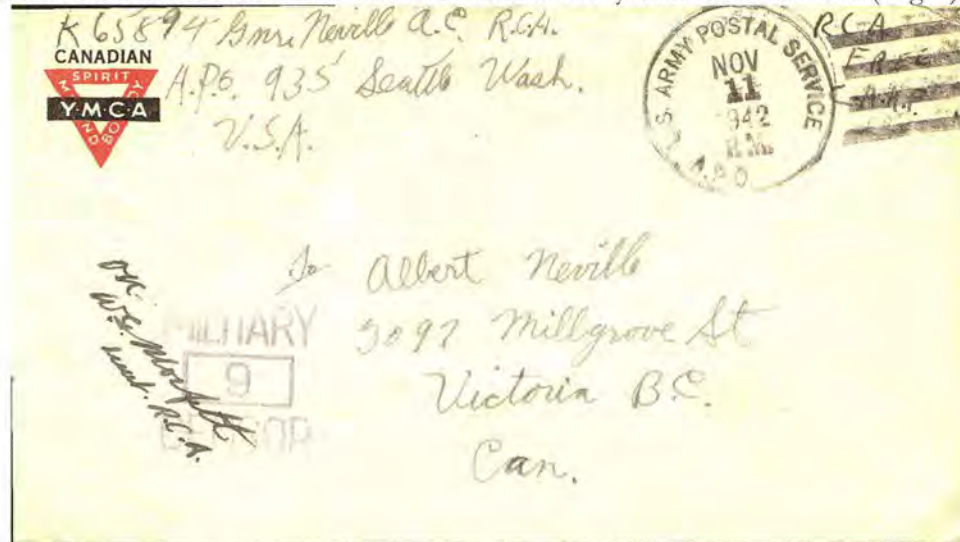 K 65894 Gnr. Neville A.C. R.C.A.
A.P.O. 935 Seattle Wash.
U.S.A.
CANADIAN
SPIRIT
Y·M·C·A
MIND
BODY
U.S. ARMY POSTAL SERVICE
NOV
11
1942
P.M.
A.P.O.
RCA
FREE
To Albert Neville
3097 Millgrove St
Victoria B.C.
Can.
MILITARY
9
CENSOR
OK.
R.C.A.